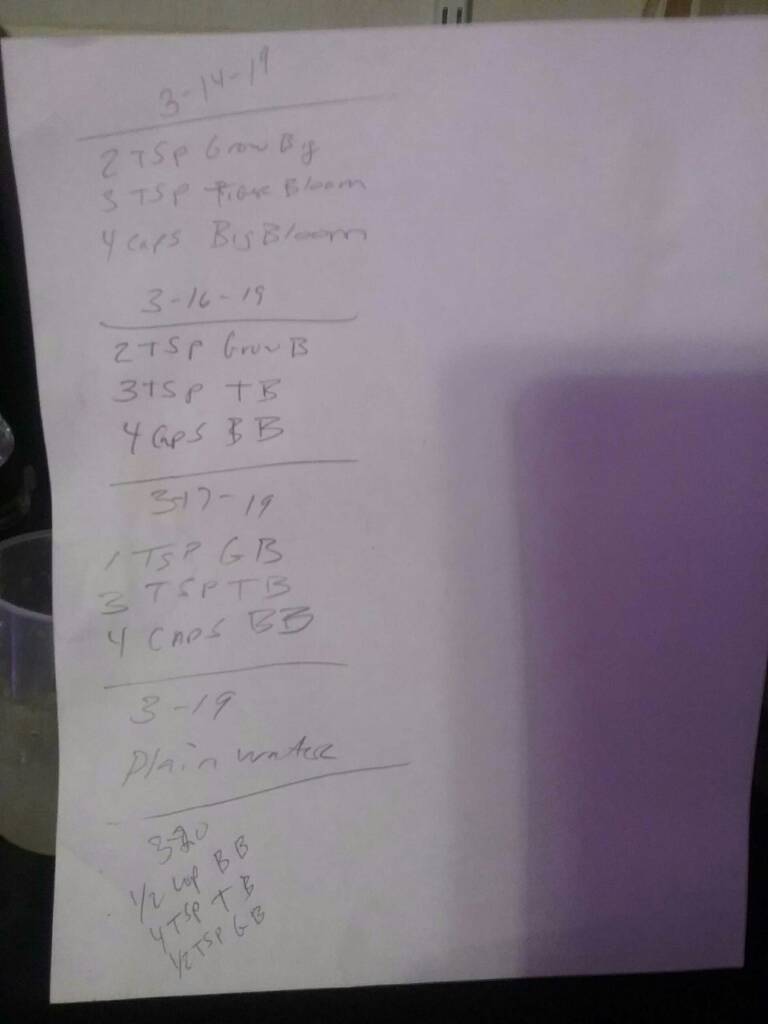 3-14-19
2 TSP Grow Big
3 TSP Tiger Bloom
4 caps Big Bloom
3-16-19
2 TSP Grow B
3 TSP TB
4 Caps BB
3-17-19
1 TSP GB
3 TSP TB
4 CAPS BB
3-19
Plain water
3-20
1/2 cup BB
4 TSP TB
1/2 TSP GB